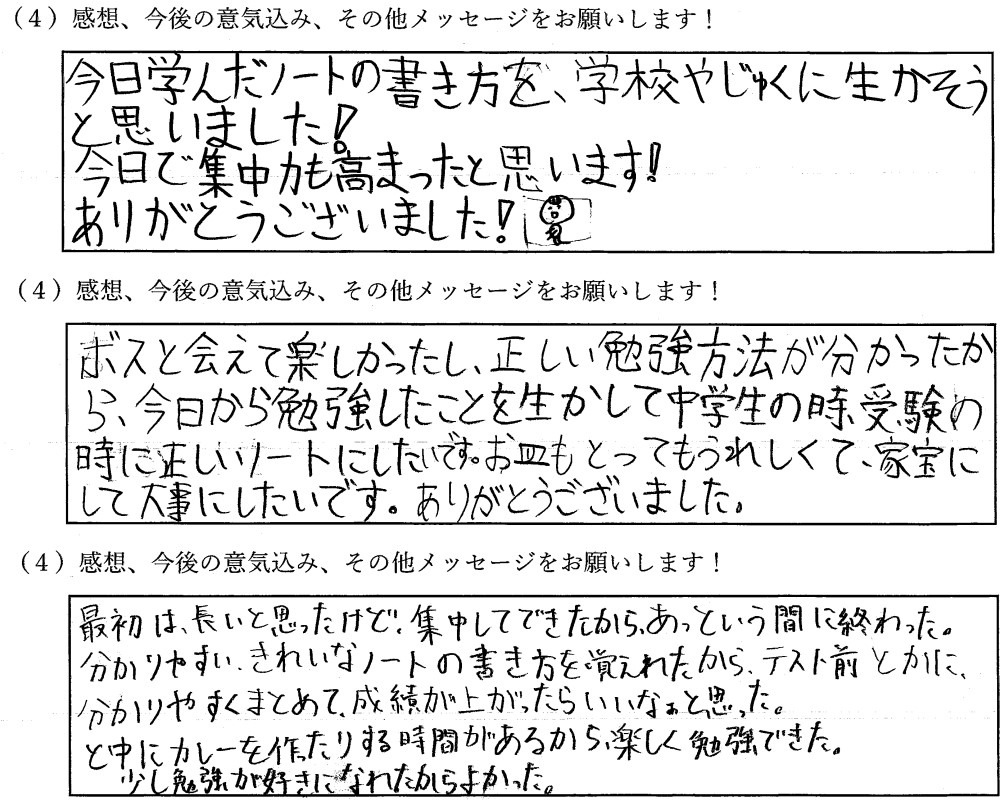 (4) 感想、今後の意気込み、その他メッセージをお願いします！
今日学んだノートの書き方を、学校やじゅくに生かそう
と思いました！
今日で集中力も高まったと思います！
ありがとうございました！
(4) 感想、今後の意気込み、その他メッセージをお願いします！
ボスと会えて楽しかったし、正しい勉強方法が分かったか
ら、今日から勉強したことを生かして中学生の時、受験の
時に正しいノートにしたいです。お皿もとってもうれしくて、家宝に
して大事にしたいです。ありがとうございました。
(4) 感想、今後の意気込み、その他メッセージをお願いします！
最初は、長いと思ったけど、集中してできたから、あっという間に終わった。
分かりやすい、きれいなノートの書き方を覚えれたから、テスト前とかに、
分かりやすくまとめて、成績が上がったらいいなぁと思った。
と中にカレーを作たりする時間があるから、楽しく勉強できた。
少し勉強が好きになれたからよかった。